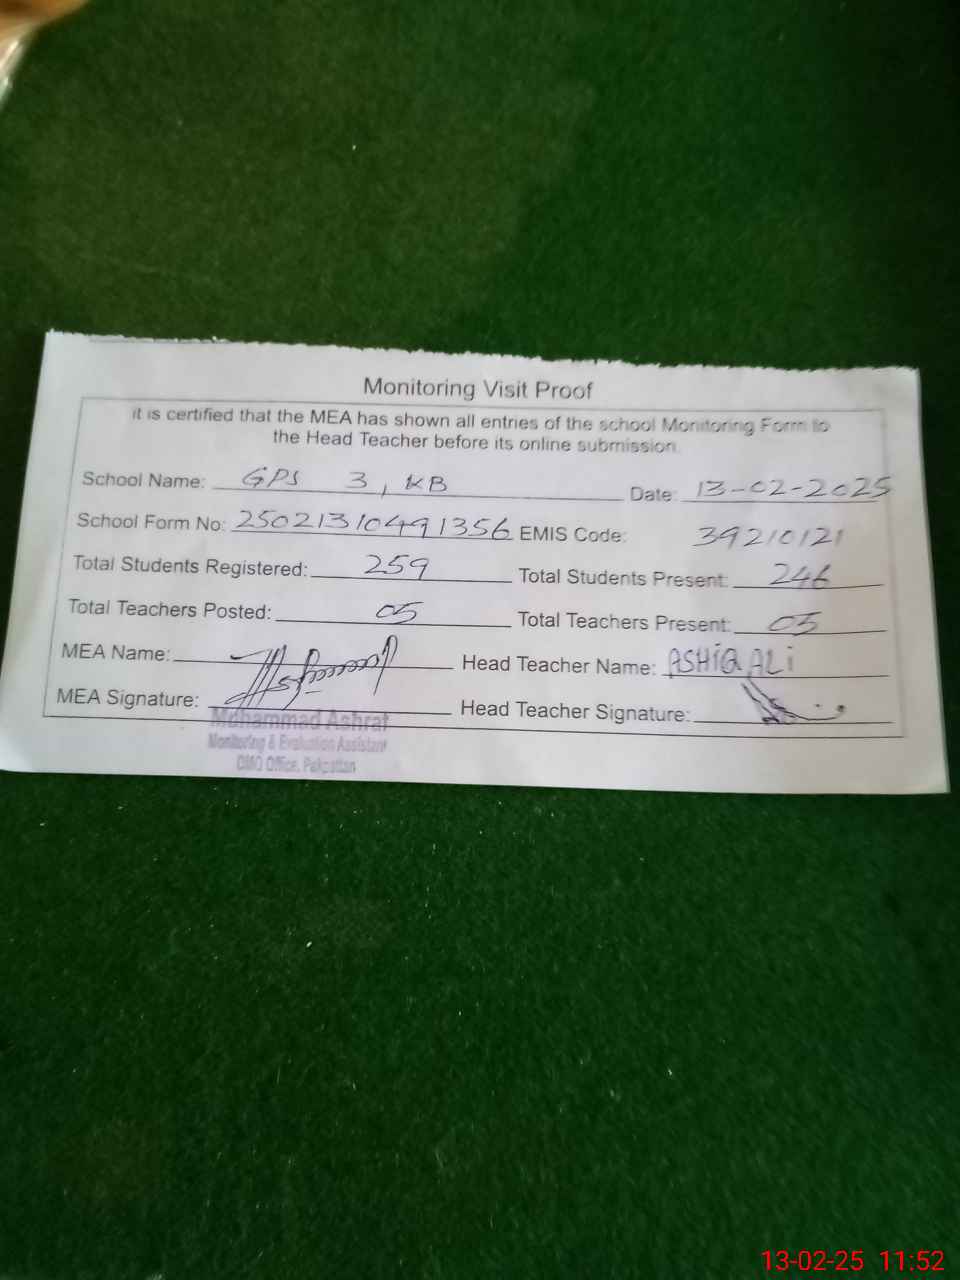 Monitoring Visit Proof
it is certified that the MEA has shown all entries of the school Monitoring Form to
the Head Teacher before its online submission.
School Name: GPS 3, KB Date: 13-02-2025
School Form No: 25021310491356 EMIS Code: 39210121
Total Students Registered: 259 Total Students Present: 246
Total Teachers Posted: 05 Total Teachers Present: 05
MEA Name: Head Teacher Name: ASHIQ ALi
MEA Signature: Head Teacher Signature:
Mohammad Ashraf
Monitoring & Evaluation Assistant
DMO Office, Pakpattan
13-02-25 11:52